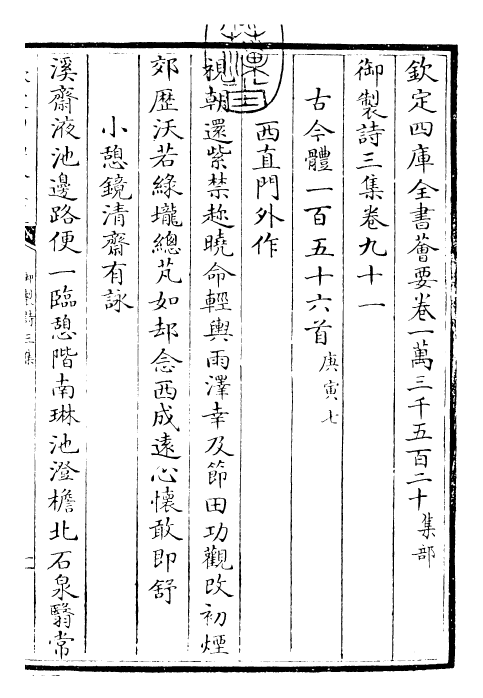 欽定四庫全書薈要卷一萬三千五百二十 集部
御製詩三集卷九十一
古今體一百五十六首 庚寅七
西直門外作
視朝還紫禁趂曉命輕輿雨澤幸及節田功觀改初煙
郊歷沃若綠壠總芃如却念西成遠心懷敢即舒
小憩鏡清齋有詠
溪齋液池邊路便一臨憩階南琳池澄檐北石泉翳常
御製詩三集